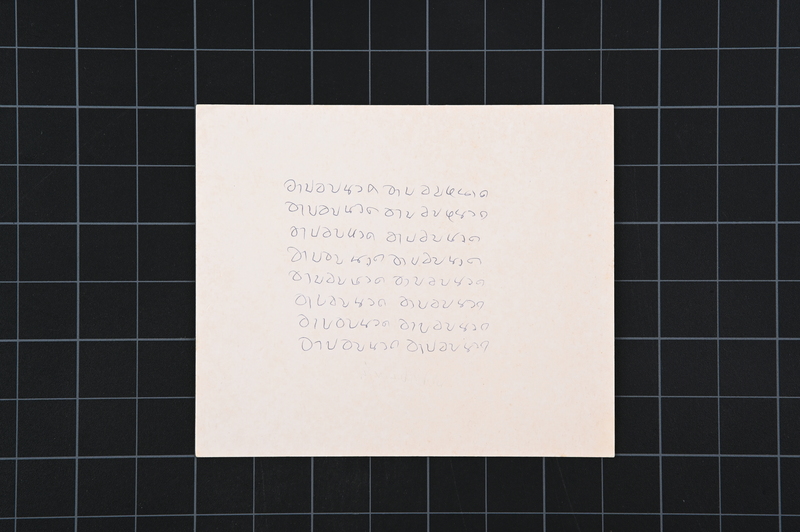 อาบอบนวด อาบ อบนวด
อาบอบนวด อาบ อบนวด
อาบอบนวด อาบอบนวด
อาบอบนวด อาบอบนวด
อาบอบนวด อาบอบนวด
อาบอบนวด อาบอบนวด
อาบอบนวด อาบอบนวด
อาบอบนวด อาบอบนวด